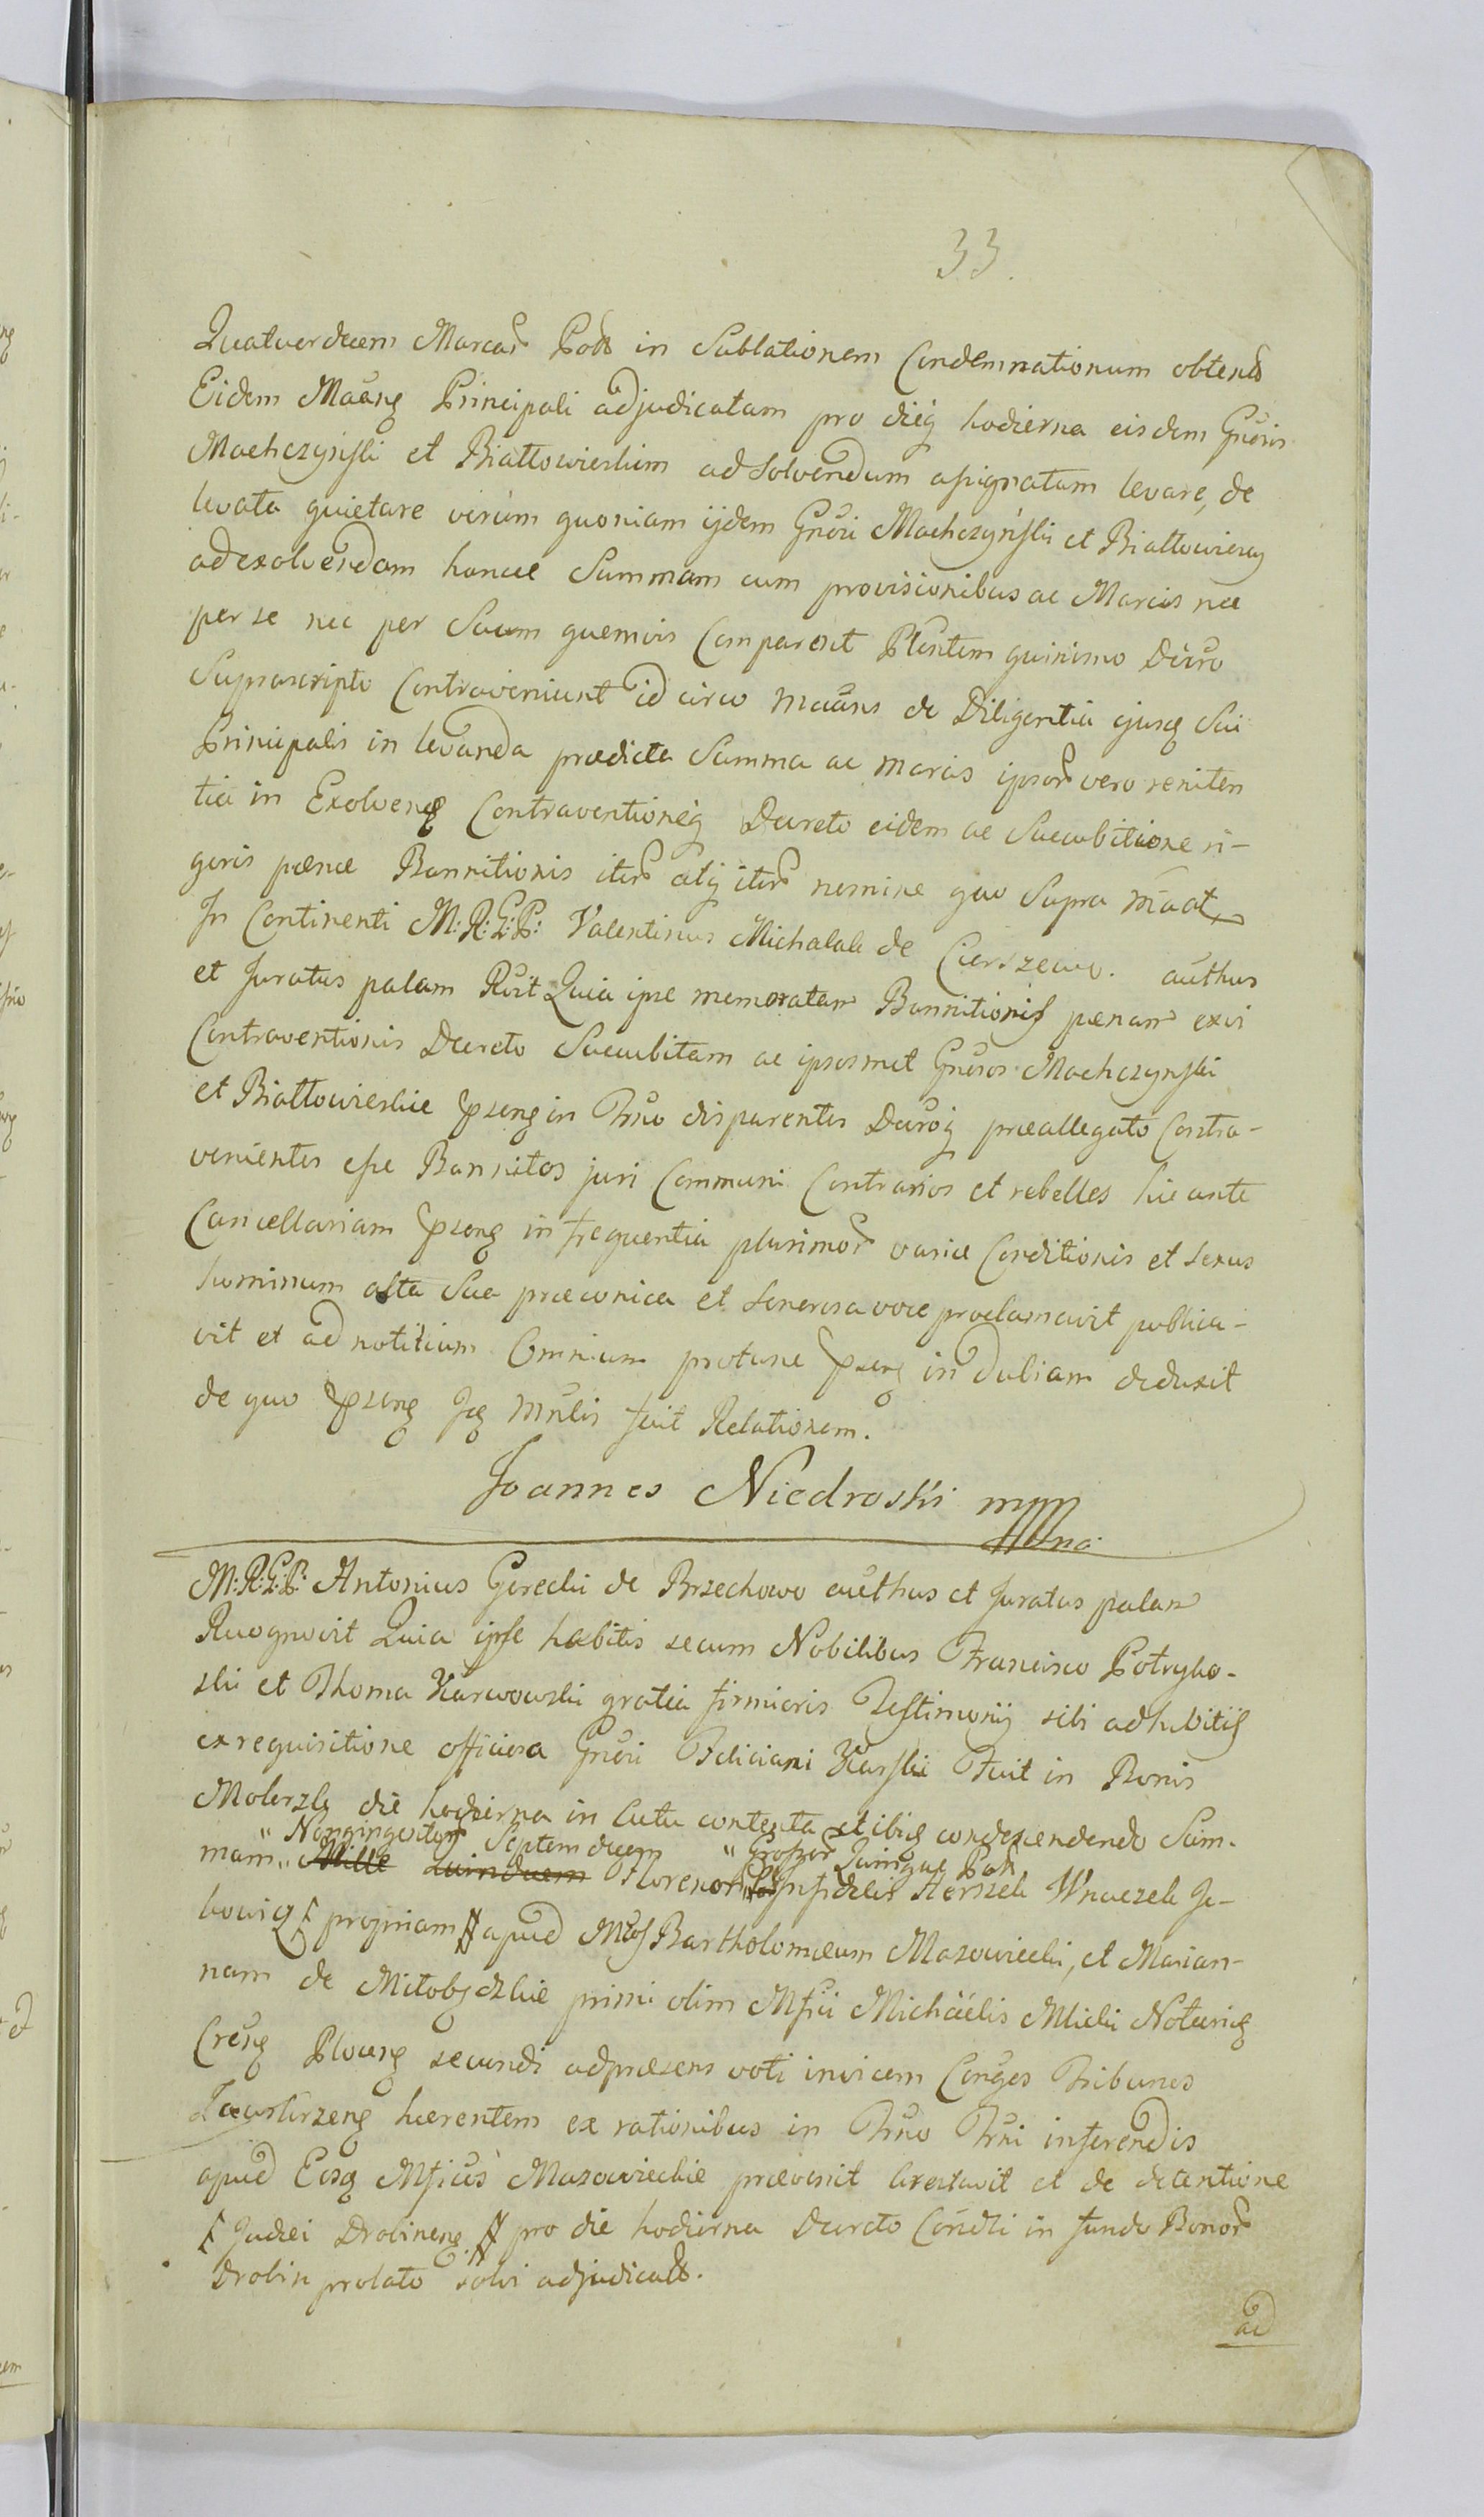 33.
Quatuordecem Marcar Poll in Sublationem Condemnationum obtent
Eidem Maãng Principali adjudicatam pro dieq hodierna eisdem Gnõris
Machczyński et Białłowieskim ad Solvendum assignatam levare, de
levata quietare verùm quoniam ijdem Gnõri Machczyńskii et Białłowiescy
ad exolvendam hancce Summam cum provisionibus ac Marcis nec
per se nec per Suum quemvis Comparent Plentem quinimo Dëcro
Suprascripto Contraveniunt id circo Maãns de Diligentia ejusq Sui
Principalis in levanda praedicta Summa ac Marcis ipsor vero reniten
tia in Exolvenq Contraventioneq Decreto eidem ac Succubitione ri-
goris paenae Bannitionis iter atq iter nomine quo Supra mãat
In Continenti M:R:G:P: Valentinus Michalak de Cierszewo. auẽthus
et Juratus palam Rẽit Quia ipse memoratam Bannitionis paenam exvi
Contraventionis Decreto Succubitam ac ipsosmet Gnẽsos Machczynski
et Białłowieskie pseng in Trñio disparentes Decroq praeallegato Contra-
venientes esse Bannitos juri Communi Contrarios et rebelles hic ante
Cancellariam pseng in frequentia plurimor variae Conditionis et sexus
hominum alta Sua praeconica et Sonorosa voce proclamavit publica-
vit et ad notitiam Omnium protunc pseng in duliam deduxit
de quo pseng Jcg mñlis fecit Relationem.
Joannes Niedroski mpp
M:R:G:P: Antonius Gorecki de Brzechowo auẽthus et Juratus palam
Recognovit Quia ipse habitis secum Nobilibus Francisco Potryko-
ski et Thoma Karwowski gratia firmioris Testimonij sibi adhibitis
ex requisitione officiosa Gnẽri Feliciani Karski Fuit in Bonis
die hodierna in Actu contenta et ibiq condescendendo Sum-
" Nongingentor Septemdecem " Groszor Quinque Poll
mam " Mille Quinduem Florenor " Infidelis Herszek Wnaczek Ja-
kowicz propriam apud Mcos Bartholomaeum Mazowiecki, et Marian-
nam de primi olim Mfici Michäelis Mlicki Notariq
Creng Plocenq secundi adpraesens voti invicem Conges Tribunos
haerentem ex rationibus in Trño Trñi inferendis
apud Eosq Mficos Mazowieckie praevenit arestavit et de detentione
Judaei Drobinenq pro die hodierna Decreto Cõndli in fundo Bonor
Drobin prolato solvi adjudicat.
ad